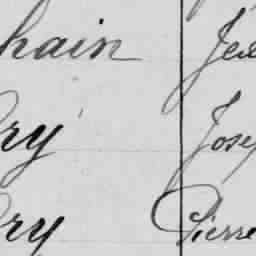 hain Je
ry Josep
ry Pierre